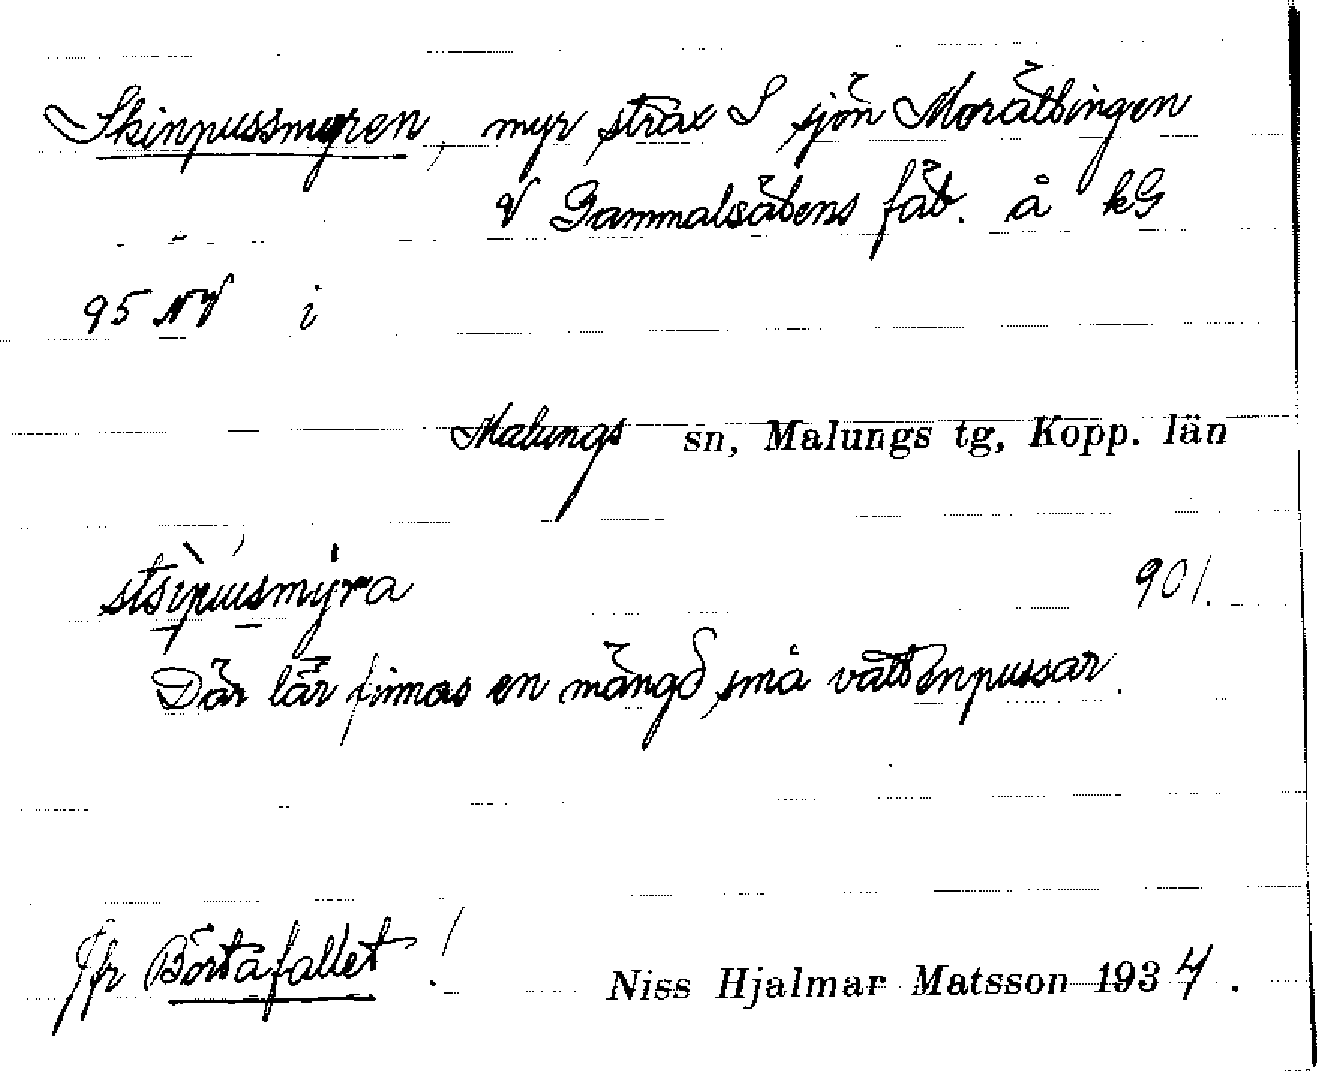 Skinnpussmyren, myr strax S sjön Morätbingen
V Gammalsätens fäb. å kG
95 NV i
Malungs sn, Malungs tg, Kopp. län
901.
Där lär finnas en mängd små vattenpussar.
Jfr Börtåfallet!
Niss Hjalmar Matsson 1934.